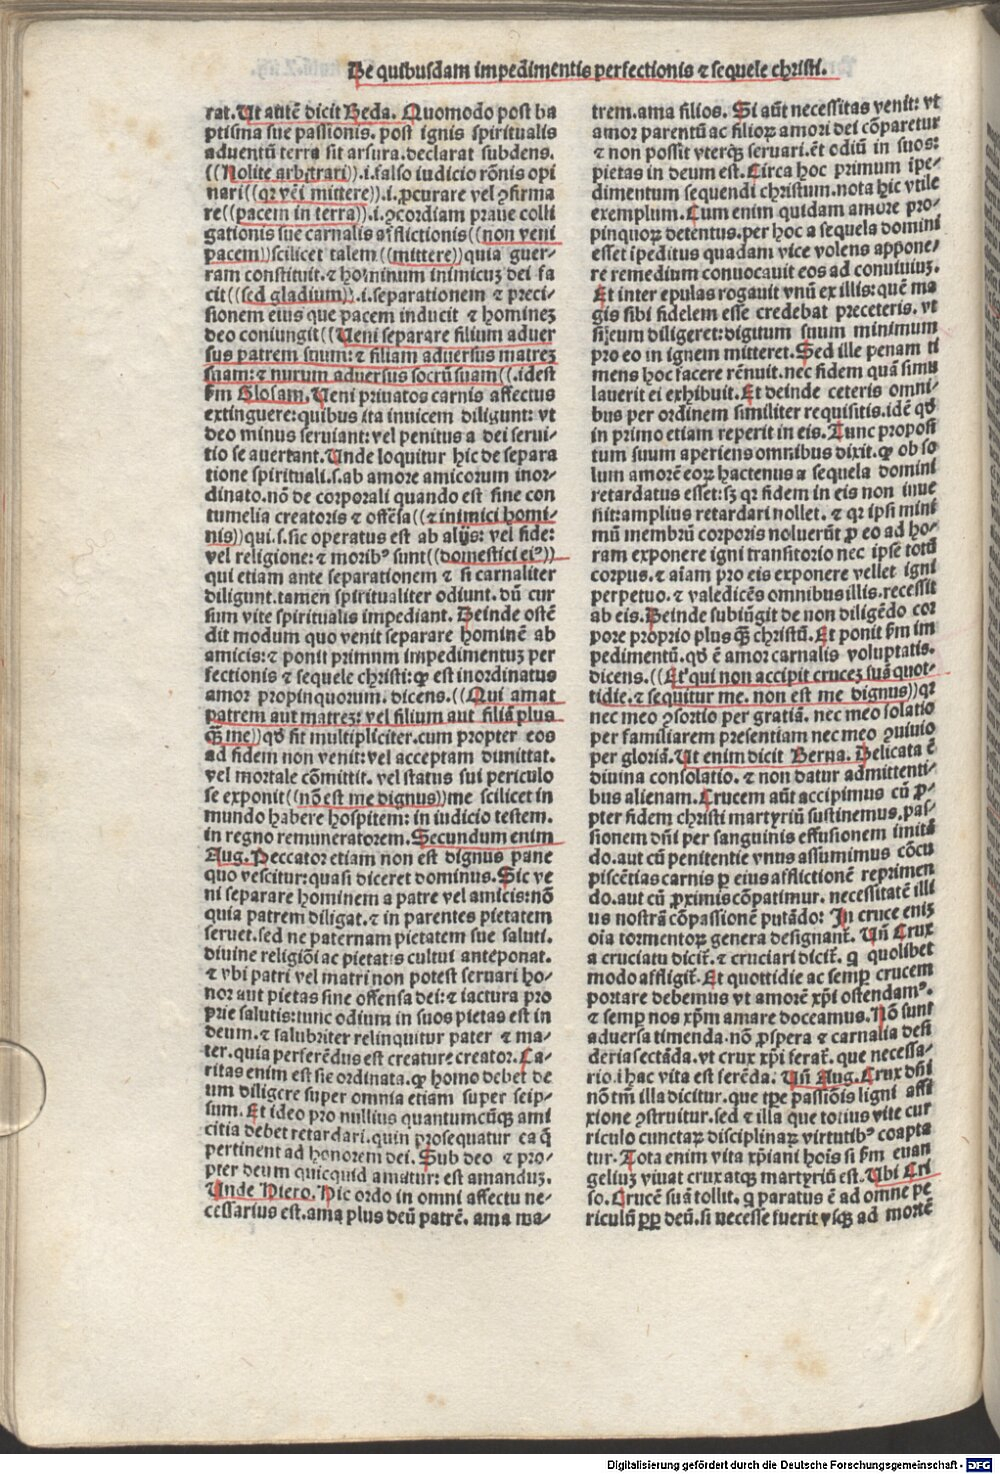 De quibusdam impedimentis perfectionis ⁊ sequele christi.
rat. Ut autē dicit Beda. Quomodo post ba
ptisma sue passionis. post ignis spiritualis
aduentū terra sit arsura. declarat subdens.
((Nolite arbitrari)).i.falso iudicio rōnis opi
nari((qꝛ vēi mittere)).i.ꝓcurare vel ꝯfirma
re((pacem in terra)).i.ꝯcordiam praue colli
gationis siue carnalis afflictionis((non veni
pacem))scilicet talem((mittere))quia guer-
ram constituit.⁊ hominum inimicuꝫ dei fa
cit((sed gladium)).i.separationem ⁊ preci-
sionem eius que pacem inducit ⁊ hominez
deo coniungit((Ueni separare filium aduer
sus patrem suum:⁊ filiam aduersus matreꝫ
suam:⁊ nurum aduersus socrū suam((.idest
ẜm Glosam. Ueni priuatos carnis affectus
extinguere: quibus ita inuicem diligunt: vt
deo minus seruiant: vel penitus a dei serui-
tio se auertant. Unde loquitur hic de separa
tione spirituali.s.ab amore amicorum inor-
dinato. nō de corporali quando est sine con
tumelia creatoris ⁊ offēsa((⁊ inimici homi-
nis))qui.s.sic operatus est ab alijs: vel fide:
vel religione: ⁊ moribꝰ sunt((domestici eiꝰ))
qui etiam ante separationem ⁊ si carnaliter
diligunt. tamen spiritualiter odiunt. dū cur
sum vite spiritualis impediant. Deinde ostē
dit modum quo venit separare hominē ab
amicis:⁊ ponit primnm impedimentuꝫ per
fectionis ⁊ sequele christi: ꝙ est inordinatus
amor propinquorum. dicens.((Qui amat
patrem aut matreꝫ: vel filium aut filiā plus
q̄ꝫ me))qđ fit multipliciter. cum propter eos
ad fidem non venit: vel acceptam dimittat.
vel mortale cōmittit. vel status sui periculo
se exponit((nō est me dignus))me scilicet in
mundo habere hospitem: in iudicio testem.
in regno remuneratorem. Secundum enim
Aug. Peccator etiam non est dignus pane
quo vescitur: quasi diceret dominus. Sic ve
ni separare hominem a patre vel amicis: nō
quia patrem diligat.⁊ in parentes pietatem
seruet. sed ne paternam pietatem sue saluti.
diuine religiōi ac pietatis cultui anteponat.
⁊ vbi patri vel matri non potest seruari ho-
nor aut pietas sine offensa dei:⁊ iactura pro
prie salutis: tunc odium in suos pietas est in
deum.⁊ salubriter relinquitur pater ⁊ ma-
ter. quia perferēdus est creature creator. Ca-
ritas enim est sic ordinata. ꝙ homo debet de
um diligere super omnia etiam super seip-
sum. Et ideo pro nullius quantumcūqꝫ ami
citia debet retardari. quin prosequatur ea q̄
pertinent ad honorem dei. Sub deo ⁊ pro-
pter deum quicquid amatur: est amanduꝫ.
Unde Hiero. Hic ordo in omni affectu ne-
cessarius est. ama plus deū patrē. ama ma-
trem. ama filios. Si aūt necessitas venit: vt
amor parentū ac filioꝝ amori dei cōparetur
⁊ non possit vterqꝫ seruari. ēt odiū in suos:
pietas in deum est. Circa hoc primum ipe-
dimentum sequendi christum. nota hic vtile
exemplum. Cum enim quidam amore pro-
pinquoꝝ detentus. per hoc a sequela domini
esset ipeditus quadam vice volens appone-
re remedium conuocauit eos ad conuiuiuꝫ.
Et inter epulas rogauit vnū ex illis: quē ma
gis sibi fidelem esse credebat preceteris. vt
si eum diligeret: digitum suum minimum
pro eo in ignem mitteret. Sed ille penam ti
mens hoc facere rēnuit. nec fidem quā simu
lauerit ei exhibuit. Et deinde ceteris omni-
bus per ordinem similiter requisitis. idē qđ
in primo etiam reperit in eis. Tunc proposi
tum suum aperiens omnibus dixit. ꝙ ob so
lum amorē eoꝝ hactenus a sequela domini
retardatus esset: sꝫ qꝛ fidem in eis non inue
nit: amplius retardari nollet.⁊ qꝛ ipsi mini
mū membrū corporis noluerūt ꝓ eo ad ho-
ram exponere igni transitorio nec ipse totū
corpus.⁊ aīam pro eis exponere vellet igni
perpetuo.⁊ valedicēs omnibus illis. recessit
ab eis. Deinde subiūgit de non diligēdo cor
pore proprio plus q̄ꝫ christū. Et ponit ẜm im
pedimentū. qđ ē amor carnalis voluptatis.
dicens.((Et qui non accipit cruceꝫ suā quot-
tidie.⁊ sequitur me. non est me dignus))qꝛ
nec meo ꝯsortio per gratiā. nec meo solatio
per familiarem presentiam nec meo ꝯuiuio
per gloriā. Ut enim dicit Berna. Delicata ē
diuina consolatio.⁊ non datur admittenti-
bus alienam. Crucem aūt accipimus cū ꝓ-
pter fidem christi martyriū sustinemus. pas-
sionem dñi per sanguinis effusionem imitā
do. aut cū penitentie vnus assumimus cōcu
piscētias carnis ꝑ eius afflictionē reprimen
do. aut cū ꝓximis cōpatimur. necessitatē illi
us nostrā cōpassionē putādo: In cruce eniꝫ
oīa tormentoꝝ genera designant̄. Uñ Crux
a cruciatu dicit̄.⁊ cruciari dicit̄. q quolibet
modo affligit̄. Et quottidie ac semꝑ crucem
portare debemus vt amorē xp̄i ostendamꝰ.
⁊ semꝑ nos xp̄m amare doceamus. Nō sunt
aduersa timenda. nō ꝓspera ⁊ carnalia desi
deria sectāda. vt crux xp̄i ferat̄. que necessa-
rio.i hac vita est ferēda. Uñ Aug. Crux dñi
nō tm̄ illa dicitur. que tꝑe passiōis ligni affi
xione ꝯstruitur. sed ⁊ illa que totius vite cur
riculo cunctaꝝ disciplinaꝝ virtutibꝰ coapta
tur. Tota enim vita xp̄iani hoīs si ẜm euan
geliuꝫ viuat crux atqꝫ martyriū est. Ubi Cri
so. Crucē suā tollit. q paratus ē ad omne pe
riculū ꝓpꝑ deū. si necesse fuerit vsqꝫ ad mortē
Digitalisierung gefördert durch die Deutsche Forschungsgemeinschaft - DFG